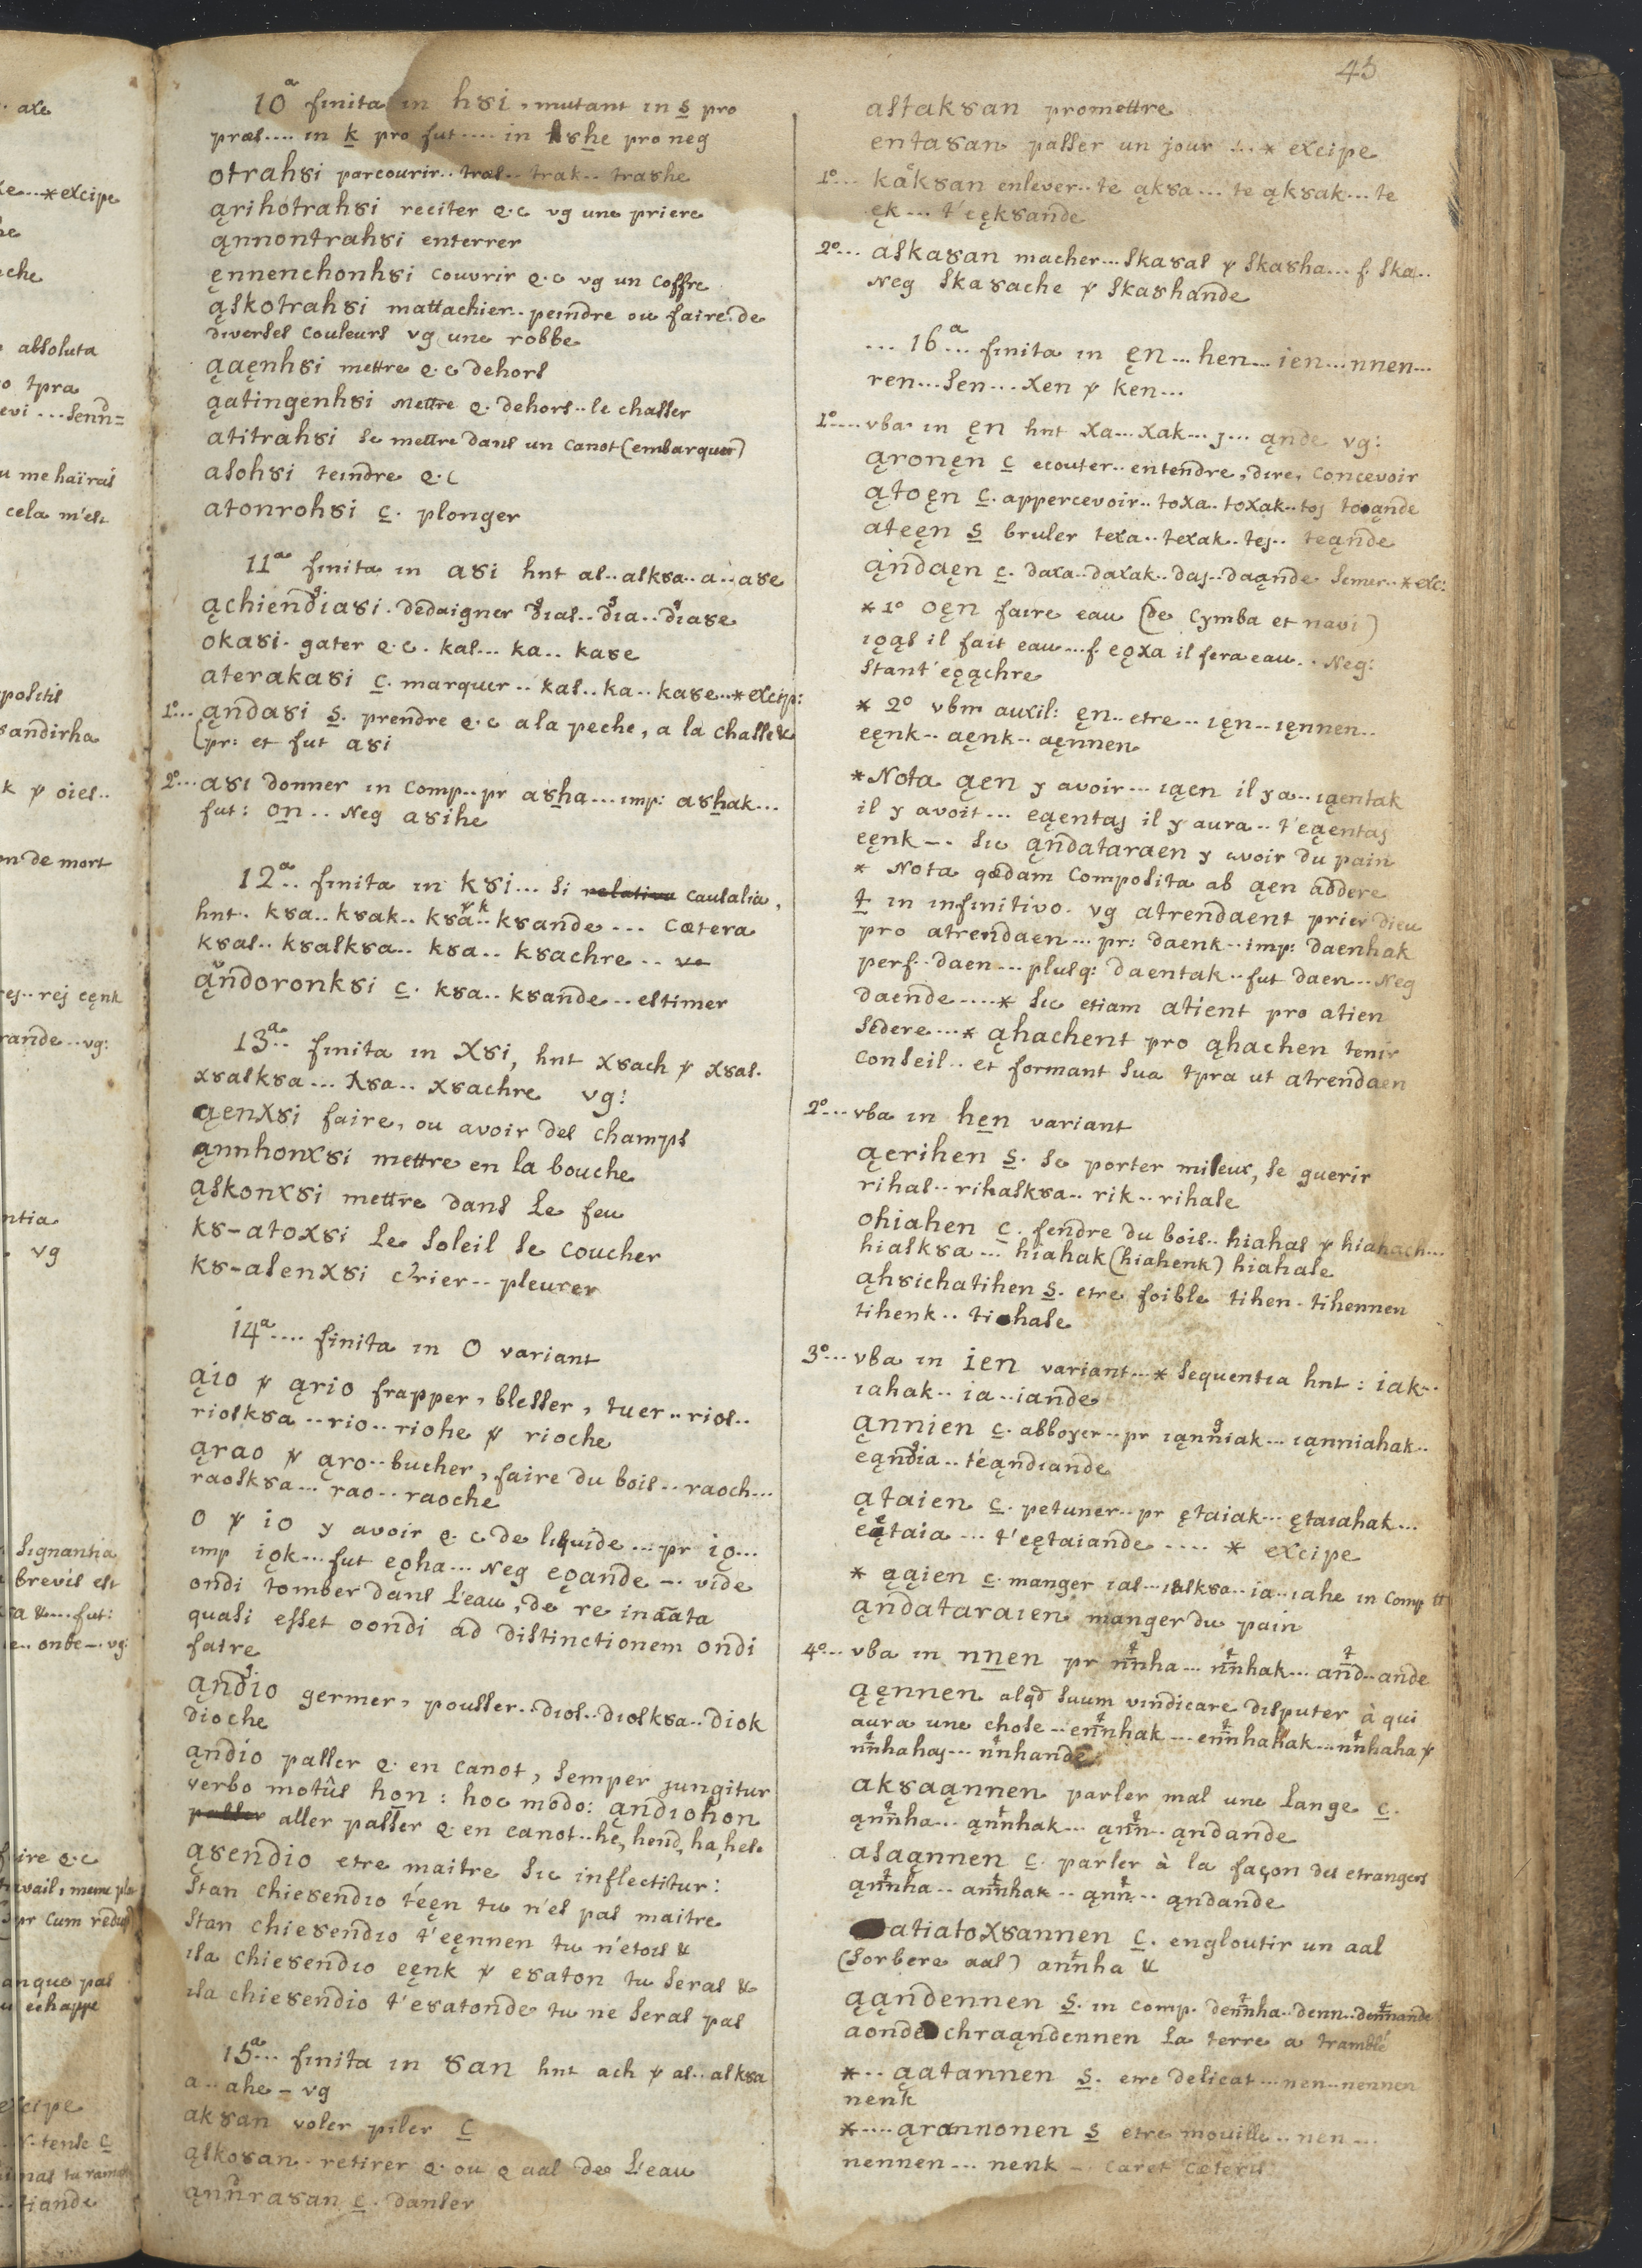 45
10ᵃ finita in hȣi, mutant in s pro
præs.... in k pro fut.... in ȣhe pro neg
otrahȣi parcourir.. tras.. trak.. traȣhe
ąrihotrahȣi reciter q.c vg une priere
ąnnontrahȣi enterrer
ęnnenchonhȣi couvrir q.c vg un coffre
ąskotrahȣi mattachier.. peindre ou faire de
diverses couleurs vg une robbe
ąaęnhȣi mettre q.c dehors
ąatingenhȣi mettre q. dehors.. le chasser
atitrahȣi se mettre dans un canot (embarquer)
asohȣi teindre q.c
atonrohȣi c. plonger
11ᵃ finita in aȣi hnt as.. askȣa.. a.. aȣe
ąchiendiaȣi. dedaigner dias.. dia.. diaȣe
okaȣi. gater q.c. kas... ka.. kaȣe
aterakaȣi c. marquer.. kas.. ka.. kaȣe..*excip:
1º... ąndaȣi s. prendre q.c a la peche, a la chasse &
pr: et fut aȣi
2º... aȣi donner in comp.. pr aȣha... imp: aȣhak...
fut: on.. Neg aȣihe
12ᵃ.. finita in kȣi... si relativa causalia,
hnt. kȣa.. kȣak.. kȣa.. kȣande... cætera
kȣas.. kȣaskȣa.. kȣa.. kȣachre.. ve
ąndoronkȣi c. kȣa.. kȣande.. estimer
13ᵃ.. finita in χȣi, hnt χȣach ỿ χȣas.
χȣaskȣa... χȣa.. χȣachre vg:
ąenχȣi faire, ou avoir des champs
ąnnhonχȣi mettre en la bouche
ąskonχȣi mettre dans le feu
kȣ-atoχȣi le soleil se coucher
kȣ-asenχȣi crier.. pleurer
14ᵃ.... finita in O variant
ąio ỿ ąrio frapper, blesser, tuer.. rios..
rioskȣa.. rio.. riohe ỿ rioche
ąrao ỿ ąro.. bucher, faire du bois.. raoch...
raoskȣa... rao.. raoche
o ỿ io y avoir q.c de liquide... pr iǫ...
imp iǫk... fut eǫha... Neg eǫande -. vide
ondi tomber dans l'eau, de re inaãta
quasi esset oondi ad distinctionem ondi
faire
ąndio germer, pousser.. dios.. dioskȣa.. diok
dioche
ąndio passer q. en canot, semper jungitur
verbo motûs hon: hoc modo: ąndiohon
passer aller passer q. en canot.. he, hend, ha, hes.
ąȣendio etre maitre sic inflectitur:
stan chieȣendio t'eęn tu n'es pas maitre
stan chieȣendio t'eęnnen tu n'etois &
isa chieȣendio eęnk ỿ eȣaton tu seras &
isa chieȣendio t'eȣatonde tu ne seras pas
15ᵃ... finita in ȣan hnt ach ỿ as.. askȣa
a.. ahe - vg
akȣan voler piler c
ąskoȣan. retirer q. ou q aal de l'eau
ąnnraȣan c. danser
astakȣan promettre
entaȣan passer un jour ... * excipe
1º... kakȣan enlever.. te ąkȣa... te ąkȣak... te
ęk... t'eękȣande
2º... askaȣan macher... skaȣas ỿ skaȣha... f. ska..
Neg skaȣache ỿ skaȣhande
... 16ᵃ... finita in ęn... hen... ien... nnen...
ren... sen... χen ỿ ken...
1º.... vba in ęn hnt χa... χak... j... ąnde vg:
ąronęn c ecouter.. entendre, dire, concevoir
ątoęn c. appercevoir.. toχa.. toχak.. toj toąnde
ateęn s bruler teχa.. teχak.. tej.. teąnde
ąndaęn c. daχa.. daχak.. daj.. daąnde semer..*exc:
* 1º oęn faire eau (de cymba et navi)
iǫąs il fait eau... f. eǫχa il fera eau.. Neg:
stant'eǫąchre
* 2º vbm auxil: ęn.. etre.. ięn.. ięnnen..
eęnk.. aęnk.. aęnnen
*Nota ąen y avoir... iąen il y a.. iąentak
il y avoit... eąentaj il y aura.. t'eąentaj
eęnk -. sic ąndataraen y avoir du pain
* Nota qædam composita ab ąen addere
t in infinitivo. vg atrendaent prier Dieu
pro atrendaen... pr: daenk.. imp: daenhak
perf.. daen... plusq: daentak.. fut daen... Neg
daende....* sic etiam atient pro atien
sedere...* ąhachent pro ąhachen tenir
conseil.. et formant sua tpra ut atrendaen
2º... vba in hen variant
ąerihen s. se porter mieux, se guerir
rihas.. rihaskȣa.. rik.. rihase
ohiahen c. fendre du bois.. hiahas ỿ hiahach...
hiaskȣa... hiahak (hiahenk) hiahase
ąhȣichatihen s. etre foible tihen. tihennen
tihenk.. tihase
3º... vba in ien variant...* sequentia hnt: iak..
iahak.. ia.. iande
ąnnien c. abboyer.. pr iąnniak... iąnniahak..
eąndia.. t'eąndiande
ątaien c. petuner.. pr ętaiak... ętaiahak...
eętaia... t'eętaiande.... * excipe
* ąąien c. manger ias... iaskȣa.. ia.. iahe in comp tt
ąndataraien manger du pain
4º... vba in nnen pr nnha... nnhak... and.. ande
ąęnnen alqd suum vindicare disputer à qui
aura une chose.. ennhak... ennhahak... nnhaha ỿ
nnhahaj... nnhande
akȣaąnnen parler mal une lange c.
ąnnha... ąnnhak... ąnn.. ąndande
asaąnnen c. parler à la façon des etrangers
ąnnha.. annhak.. ąnn... ąndande
atiatoχȣannen c. engloutir un aal
(sorbere aal) annha &
ąąndennen s. in comp. dennha.. denn.. dennande
aondechraąndennen la terre a tramblé
*.. ąatannen s. etre delicat... nen.. nennen
nenk
*.... ąrannonen s etre mouille.. nen...
nennen... nenk - caret cæteris